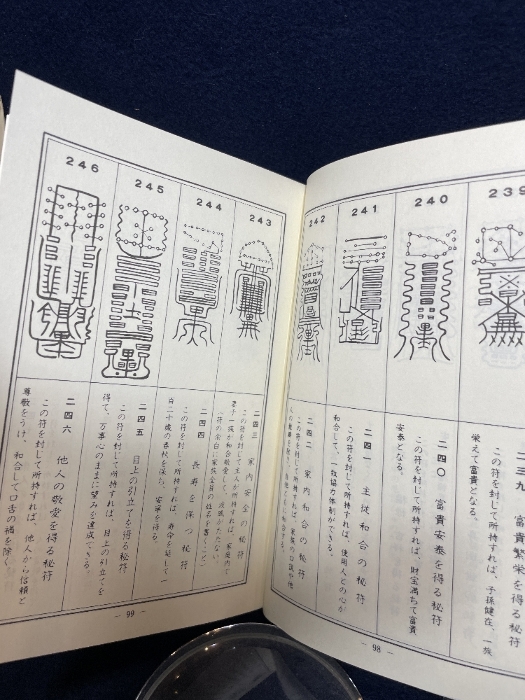 239
240
241
242
243
244
245
246
二三九 富貴繁栄を得る秘符
この符を封じて所持すれば、子孫健在、一族
栄えて富貴となる。
二四〇 富貴安泰を得る秘符
この符を封じて所持すれば、財宝満ちて富貴
安泰となる。
二四一 主従和合の秘符
この符を封じて所持すれば、使用人との心が
和合して、一致協力体制ができる。
二四二 家内和合の秘符
この符を封じて所持すれば、家族の
二四三 家内安全の秘符
この符を封じて
二四四 長寿を保つ秘符
この符を封じて所持すれば、寿命を延して一
百二十歳の春秋を保ち、安寧を得る。
二四五 目上の引立てを得る秘符
この符を封じて所持すれば、目上の引立てを
得て、万事心のままに望みを達成できる。
二四六 他人の敬愛を得る秘符
この符を封じて所持すれば、他人から信頼と
尊敬をうけ、和合して口舌の禍を除く。
— 98 —
— 99 —